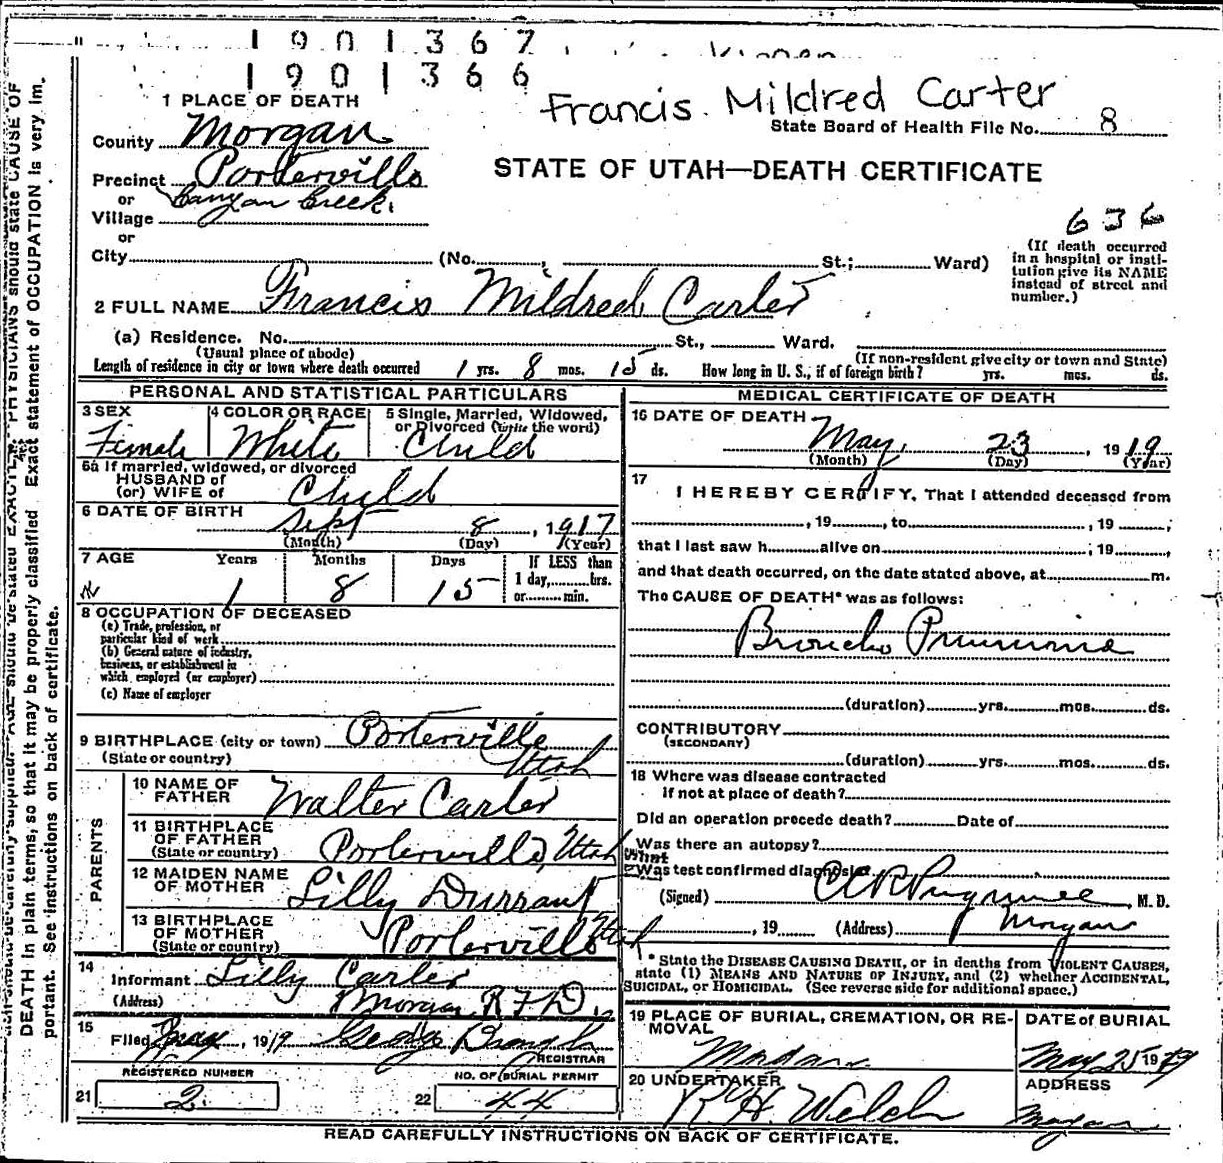 1901367
1901366
Francis. Mildred Carter
State Board of Health File No. 8
1 PLACE OF DEATH
County Morgan
STATE OF UTAH—DEATH CERTIFICATE
Precinct Porterville
or Canyon Creek.
Village
or
City (No. , St.; Ward)
636
(If death occurred
in a hospital or insti-
tution give its NAME
instead of street and
number.)
2 FULL NAME Francis Mildred Carter
(a) Residence. No. St., Ward.
(Usual place of abode) (If non-resident give city or town and State)
Length of residence in city or town where death occurred 1 yrs. 8 mos. 15 ds. How long in U. S., if of foreign birth? yrs. mos. ds.
PERSONAL AND STATISTICAL PARTICULARS
3 SEX 4 COLOR OR RACE 5 Single, Married, Widowed,
or Divorced (write the word)
Female White Child
6a If married, widowed, or divorced
HUSBAND of
(or) WIFE of Child
6 DATE OF BIRTH Sept 8, 1917
(Month) (Day) (Year)
7 AGE Years Months Days If LESS than
1 day, hrs.
or min.
1 8 15
8 OCCUPATION OF DECEASED
(a) Trade, profession, or
particular kind of work
(b) General nature of industry,
business, or establishment in
which employed (or employer)
(c) Name of employer
9 BIRTHPLACE (city or town) Porterville
(State or country) Utah
PARENTS
10 NAME OF
FATHER Walter Carter
11 BIRTHPLACE
OF FATHER
(State or country) Porterville, Utah
12 MAIDEN NAME
OF MOTHER Lilly Durrant
13 BIRTHPLACE
OF MOTHER
(State or country) Porterville Utah
14
Informant Lilly Carter
(Address) Morgan R F D. 1
15
Filed May, 1919 George
REGISTRAR
REGISTERED NUMBER
21 2
NO. OF BURIAL PERMIT
22 44
MEDICAL CERTIFICATE OF DEATH
16 DATE OF DEATH May 23, 1919
(Month) (Day) (Year)
17
I HEREBY CERTIFY, That I attended deceased from
, 19 , to , 19 ,
that I last saw h alive on ; 19 ,
and that death occurred, on the date stated above, at m.
The CAUSE OF DEATH* was as follows:
Broncho Pneumonia
(duration) yrs. mos. ds.
CONTRIBUTORY
(SECONDARY)
(duration) yrs. mos. ds.
18 Where was disease contracted
if not at place of death?
Did an operation precede death? Date of
Was there an autopsy?
What
Was test confirmed diagnosis
(Signed) , M. D.
, 19 (Address) Morgan
* State the DISEASE CAUSING DEATH, or in deaths from VIOLENT CAUSES,
state (1) MEANS AND NATURE OF INJURY, and (2) whether ACCIDENTAL,
SUICIDAL, or HOMICIDAL. (See reverse side for additional space.)
19 PLACE OF BURIAL, CREMATION, OR RE-
MOVAL
DATE of BURIAL
May 25 1919
20 UNDERTAKER
R. H. Welch
ADDRESS
Morgan
READ CAREFULLY INSTRUCTIONS ON BACK OF CERTIFICATE.
PHYSICIANS should state CAUSE OF
DEATH in plain terms, so that it may be properly classified. Exact statement of OCCUPATION is very im-
portant. See instructions on back of certificate.